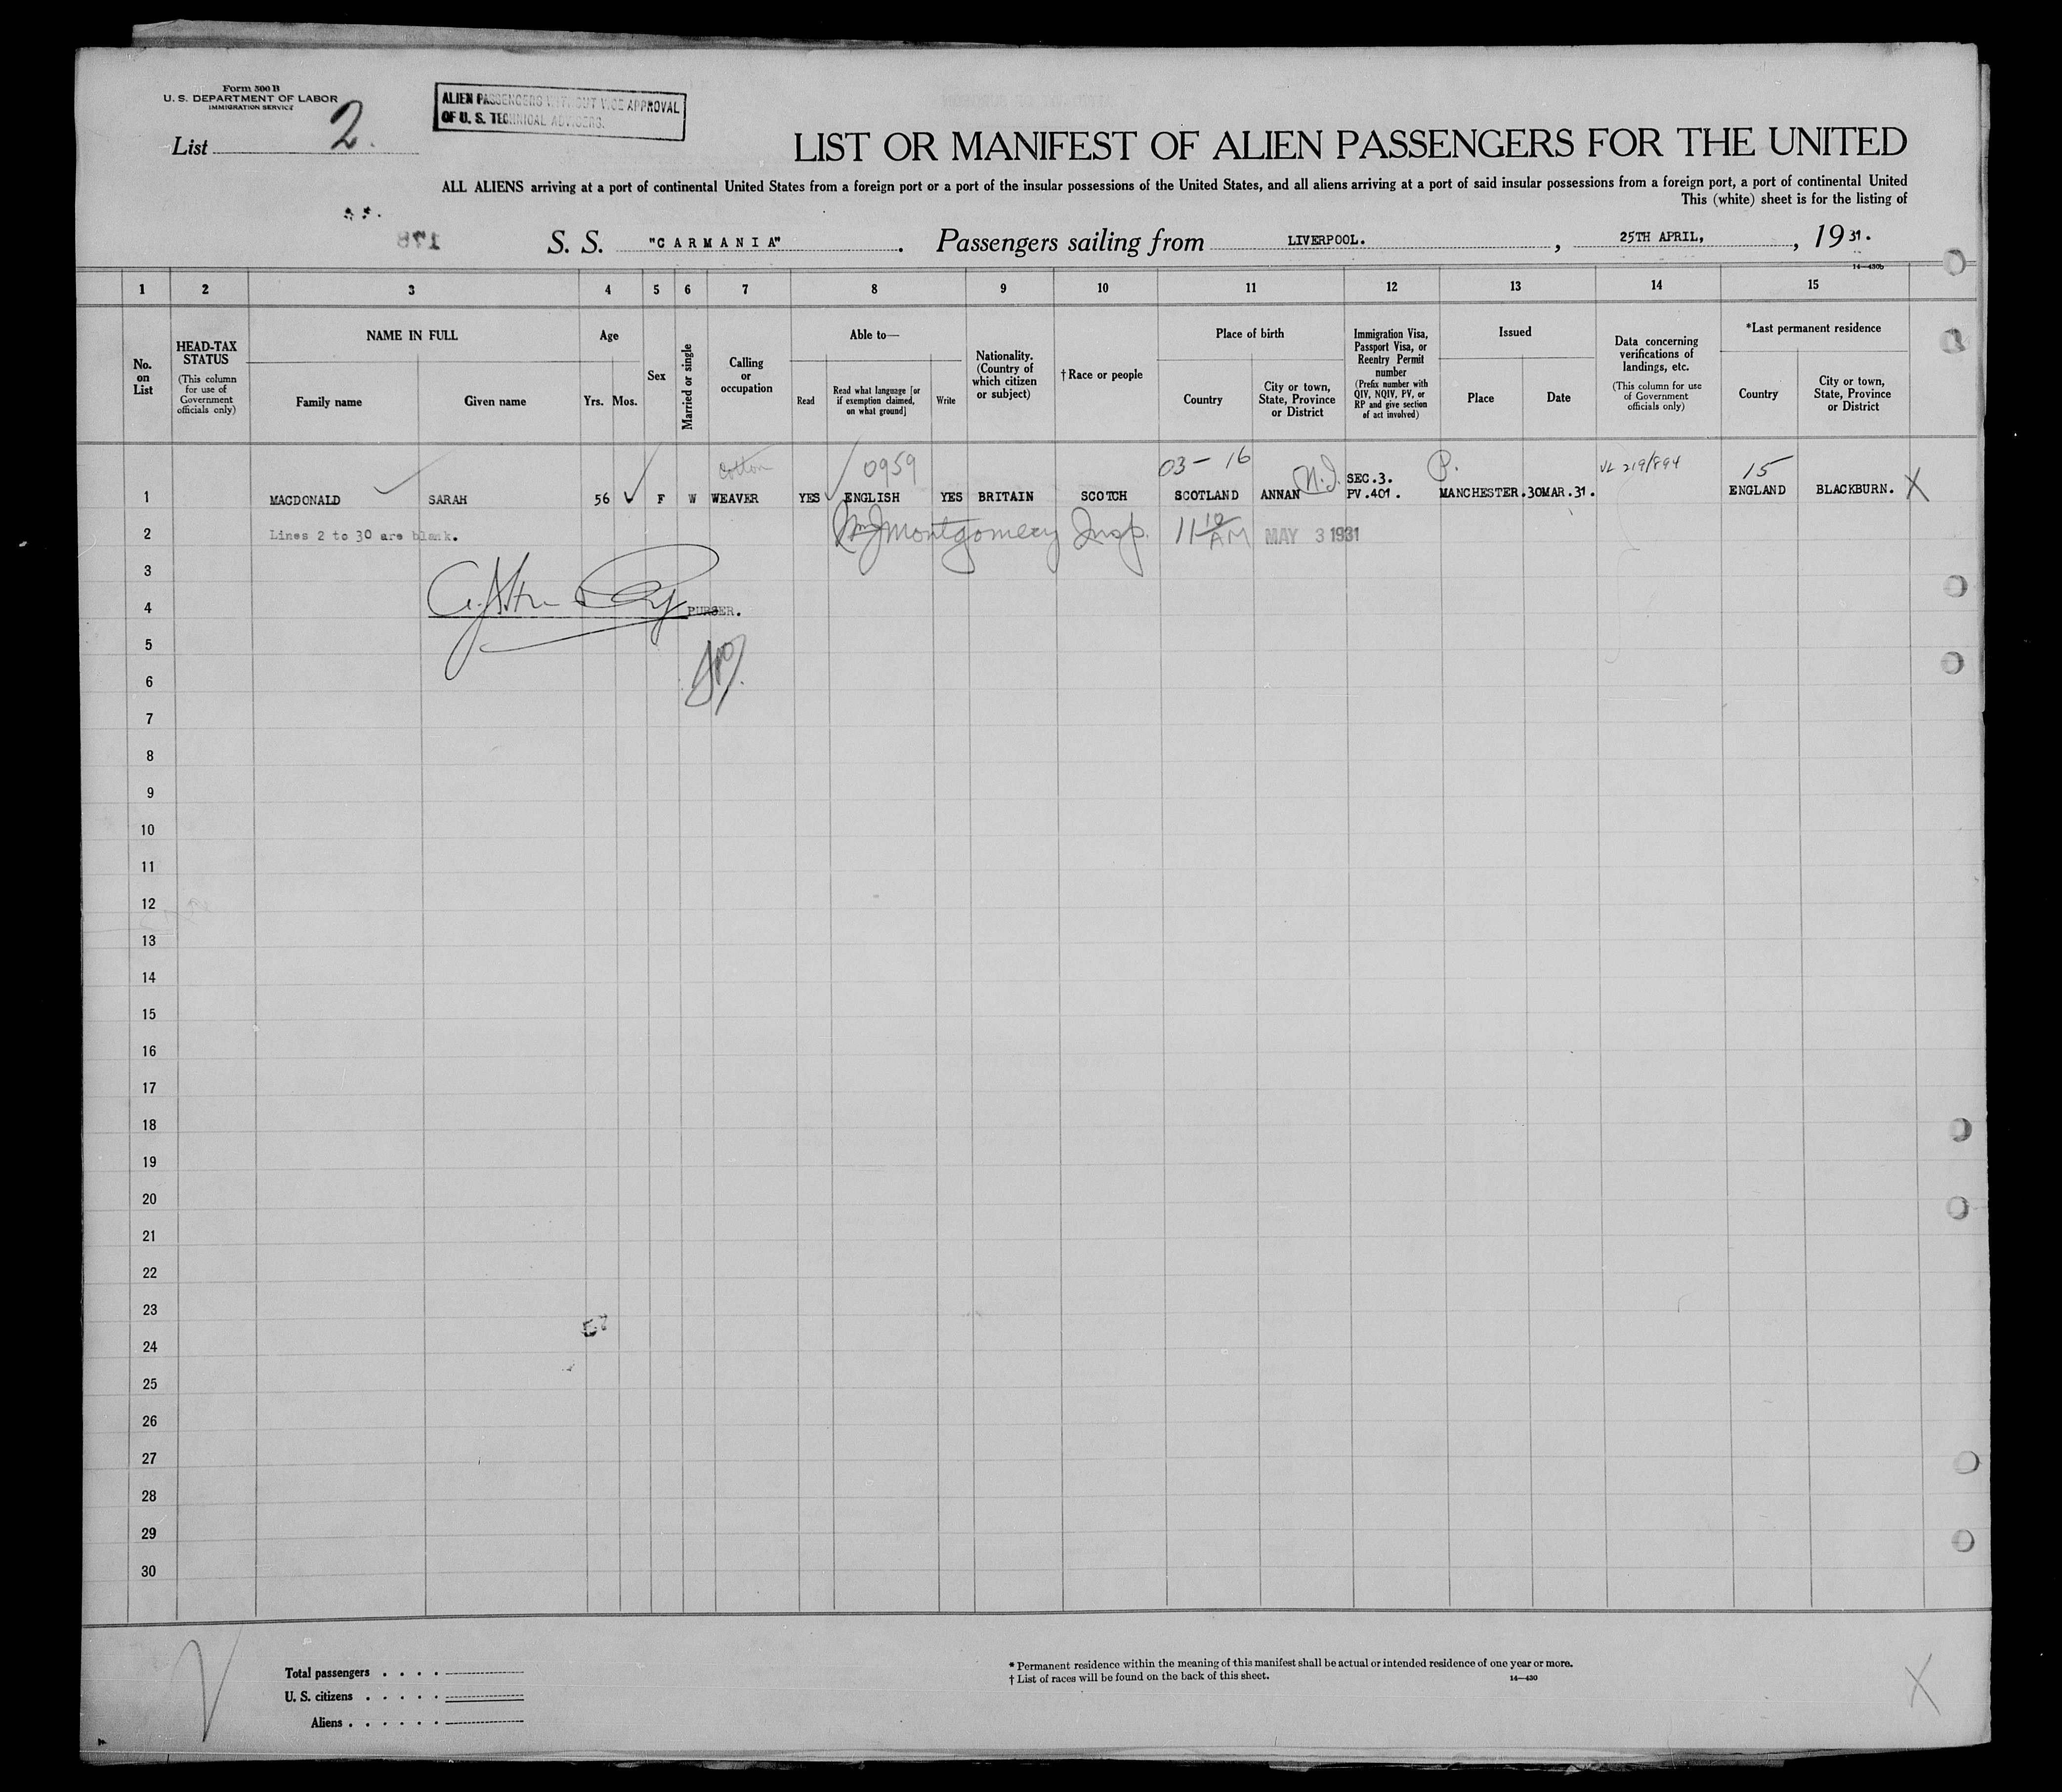 Form 500 B
U. S. DEPARTMENT OF LABOR
IMMIGRATION SERVICE
List 2.
ALIEN PASSENGERS WITHOUT VICE APPROVAL
OF U. S. TECHNICAL ADVISERS.
LIST OR MANIFEST OF ALIEN PASSENGERS FOR THE UNITED
ALL ALIENS arriving at a port of continental United States from a foreign port or a port of the insular possessions of the United States, and all aliens arriving at a port of said insular possessions from a foreign port, a port of continental United
This (white) sheet is for the listing of
178
S. S. "CARMANIA". Passengers sailing from LIVERPOOL. , 25TH APRIL, , 19 31.
14—430b
1 2 3 4 5 6 7 8 9 10 11 12 13 14 15
No. on List
HEAD-TAX STATUS
(This column for use of Government officials only)
NAME IN FULL
Family name
Given name
Age
Yrs. Mos.
Sex
Married or single
Calling or occupation
Able to—
Read
Read what language [or if exemption claimed, on what ground]
Write
Nationality. (Country of which citizen or subject)
†Race or people
Place of birth
Country
City or town, State, Province or District
Immigration Visa, Passport Visa, or Reentry Permit number
(Prefix number with QIV, NQIV, PV, or RP and give section of act involved)
Issued
Place
Date
Data concerning verifications of landings, etc.
(This column for use of Government officials only)
*Last permanent residence
Country
City or town, State, Province or District
Cotton 0959 03 - 16 N.J. SEC.3. P. VL 219/894 15
1 MACDONALD SARAH 56 F W WEAVER YES ENGLISH YES BRITAIN SCOTCH SCOTLAND ANNAN PV.401. MANCHESTER. 30MAR.31. ENGLAND BLACKBURN. X
2 Lines 2 to 30 are blank. Wm J Montgomery Insp. 11 10 AM MAY 3 1931
3
4 PURSER.
5
6
7
8
9
10
11
12
13
14
15
16
17
18
19
20
21
22
23
24
25
26
27
28
29
30
Total passengers . . . .
U. S. citizens . . . . .
Aliens . . . . . .
* Permanent residence within the meaning of this manifest shall be actual or intended residence of one year or more.
† List of races will be found on the back of this sheet.
14—430
X